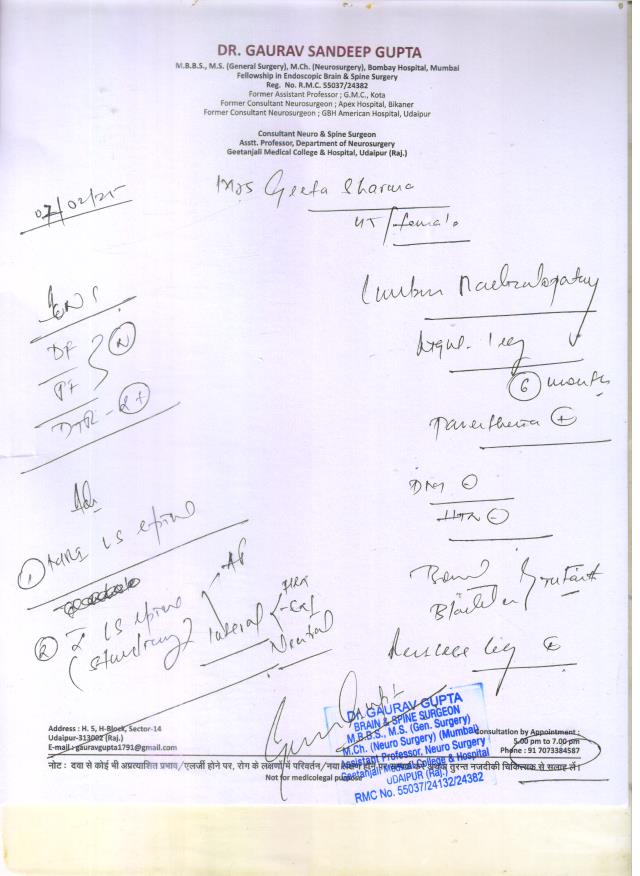 DR. GAURAV SANDEEP GUPTA
M.B.B.S., M.S. (General Surgery), M.Ch. (Neurosurgery), Bombay Hospital, Mumbai
Fellowship in Endoscopic Brain & Spine Surgery
Reg. No. R.M.C. 55037/24382
Former Assistant Professor ; G.M.C., Kota
Former Consultant Neurosurgeon ; Apex Hospital, Bikaner
Former Consultant Neurosurgeon ; GBH American Hospital, Udaipur
Consultant Neuro & Spine Surgeon
Asstt. Professor, Department of Neurosurgery
Geetanjali Medical College & Hospital, Udaipur (Raj.)
07/02/25
Mrs Geeta Sharma
/female
Lumbar
leg
6 months
DF
PF
N
DTR - 2+
+
DM -
HTN -
Adv
1 MRI LS spine
2 X LS spine
(standing)
AP
lateral
Flex
Ext
Neutral
Bowel
Bladder
intact
DR. GAURAV GUPTA
BRAIN & SPINE SURGEON
M.B.B.S., M.S. (Gen. Surgery)
M.Ch. (Neuro Surgery) (Mumbai)
Assistant Professor, Neuro Surgery
Geetanjali Medical College & Hospital
UDAIPUR (Raj.)
RMC No. 55037/24132/24382
Address : H. 5, H-Block, Sector-14
Udaipur-313002 (Raj.)
E-mail : gauravgupta1791@gmail.com
Consultation by Appointment :
5.00 pm to 7.00 pm
Phone : 91 7073384587
नोट : दवा से कोई भी अप्रत्याशित प्रभाव/एलर्जी होने पर, रोग के लक्षणों में परिवर्तन/नया लक्षण होने पर तुरन्त नजदीकी चिकित्सक से सलाह लें।
Not for medicolegal purpose